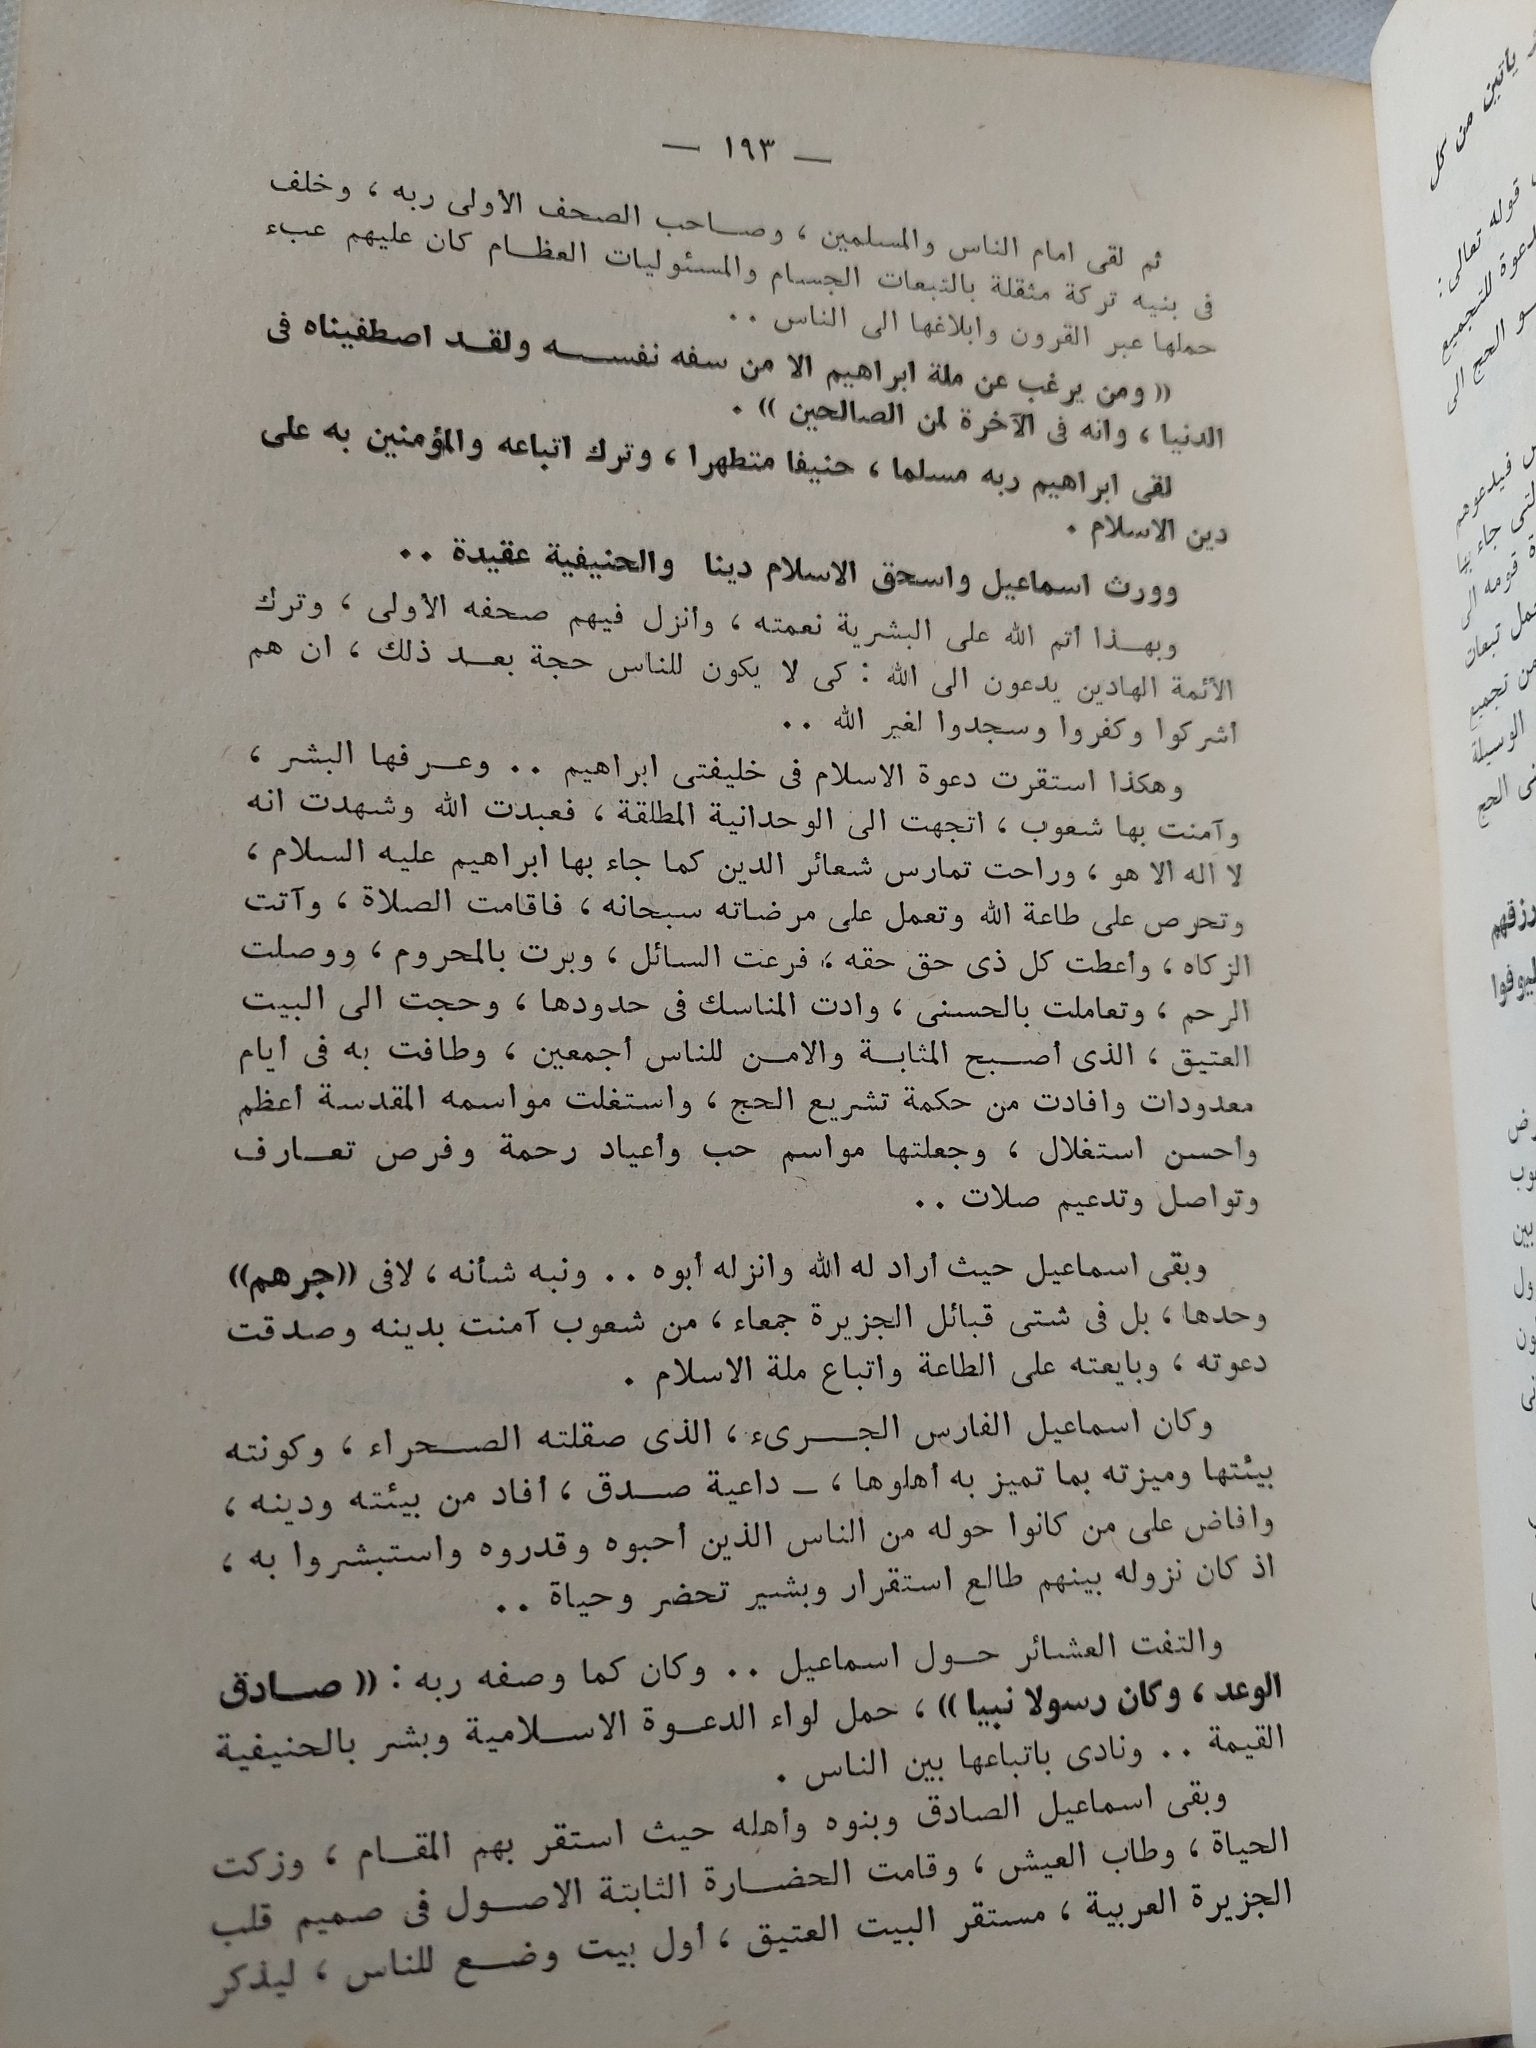 — ١٩٣ —
ثم لقى امام الناس والمسلمين ، وصاحب الصحف الأولى ربه ، وخلف
فى بنيه تركة مثقلة بالتبعات الجسام والمسئوليات العظام كان عليهم عبء
حملها عبر القرون وابلاغها الى الناس ..
(( ومن يرغب عن ملة ابراهيم الا من سفه نفسه ولقد اصطفيناه فى
الدنيا ، وانه فى الآخرة لمن الصالحين )) .
لقى ابراهيم ربه مسلما ، حنيفا متطهرا ، وترك اتباعه والمؤمنين به على
دين الاسلام .
وورث اسماعيل واسحق الاسلام دينا والحنيفية عقيدة ..
وبهذا أتم الله على البشرية نعمته ، وأنزل فيهم صحفه الأولى ، وترك
الأئمة الهادين يدعون الى الله : كى لا يكون للناس حجة بعد ذلك ، ان هم
أشركوا وكفروا وسجدوا لغير الله ..
وهكذا استقرت دعوة الاسلام فى خليفتى ابراهيم .. وعرفها البشر ،
وآمنت بها شعوب ، اتجهت الى الوحدانية المطلقة ، فعبدت الله وشهدت انه
لا اله الا هو ، وراحت تمارس شعائر الدين كما جاء بها ابراهيم عليه السلام ،
وتحرص على طاعة الله وتعمل على مرضاته سبحانه ، فاقامت الصلاة ، وآتت
الزكاه ، وأعطت كل ذى حق حقه ، فرعت السائل ، وبرت بالمحروم ، ووصلت
الرحم ، وتعاملت بالحسنى ، وادت المناسك فى حدودها ، وحجت الى البيت
العتيق ، الذى أصبح المثابة والامن للناس أجمعين ، وطافت به فى أيام
معدودات وافادت من حكمة تشريع الحج ، واستغلت مواسمه المقدسة أعظم
وأحسن استغلال ، وجعلتها مواسم حب وأعياد رحمة وفرص تعارف
وتواصل وتدعيم صلات ..
وبقى اسماعيل حيث أراد له الله وانزله أبوه .. ونبه شأنه ، لافى ((جرهم))
وحدها ، بل فى شتى قبائل الجزيرة جمعاء ، من شعوب آمنت بدينه وصدقت
دعوته ، وبايعته على الطاعة واتباع ملة الاسلام .
وكان اسماعيل الفارس الجرىء ، الذى صقلته الصحراء ، وكونته
بيئتها وميزته بما تميز به أهلوها ، — داعية صدق ، أفاد من بيئته ودينه ،
وافاض على من كانوا حوله من الناس الذين أحبوه وقدروه واستبشروا به ،
اذ كان نزوله بينهم طالع استقرار وبشير تحضر وحياة ..
والتفت العشائر حول اسماعيل .. وكان كما وصفه ربه : (( صادق
الوعد ، وكان رسولا نبيا )) ، حمل لواء الدعوة الاسلامية وبشر بالحنيفية
القيمة .. ونادى باتباعها بين الناس .
وبقى اسماعيل الصادق وبنوه وأهله حيث استقر بهم المقام ، وزكت
الحياة ، وطاب العيش ، وقامت الحضارة الثابتة الاصول فى صميم قلب
الجزيرة العربية ، مستقر البيت العتيق ، أول بيت وضع للناس ، ليذكر
يأتين من كل
قوله تعالى :
دعوة للتجميع
الحج الى
فيدعوهم
التى جاء بها
قومه الى
تبعات
من تجميع
الوسيلة
الحج
رزقهم
ليوفوا
بين